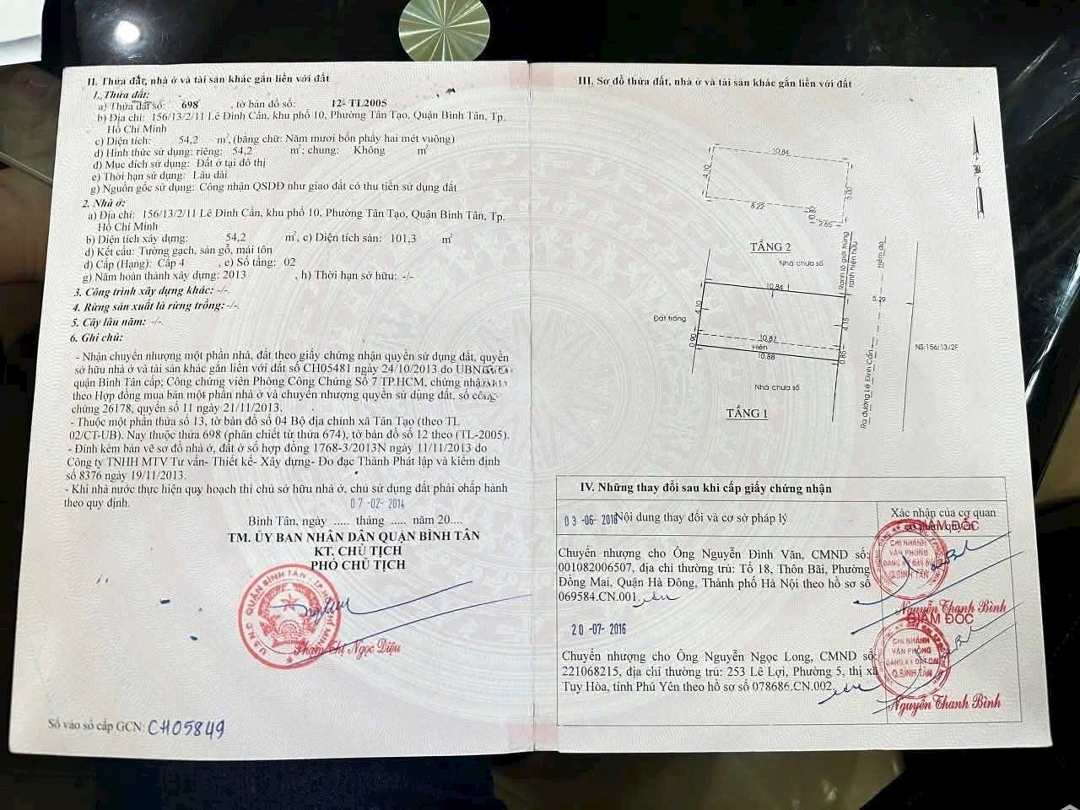 II. Thửa đất, nhà ở và tài sản khác gắn liền với đất
1. Thửa đất:
a) Thửa đất số: 698 , tờ bản đồ số: 12- TL2005
b) Địa chỉ: 156/13/2/11 Lê Đình Cẩn, khu phố 10, Phường Tân Tạo, Quận Bình Tân, Tp.
Hồ Chí Minh
c) Diện tích: 54,2 m², (bằng chữ: Năm mươi bốn phẩy hai mét vuông)
d) Hình thức sử dụng: riêng: 54,2 m²; chung: Không m²
đ) Mục đích sử dụng: Đất ở tại đô thị
e) Thời hạn sử dụng: Lâu dài
g) Nguồn gốc sử dụng: Công nhận QSDĐ như giao đất có thu tiền sử dụng đất
2. Nhà ở:
a) Địa chỉ: 156/13/2/11 Lê Đình Cẩn, khu phố 10, Phường Tân Tạo, Quận Bình Tân, Tp.
Hồ Chí Minh
b) Diện tích xây dựng: 54,2 m², c) Diện tích sàn: 101,3 m²
d) Kết cấu: Tường gạch, sàn gỗ, mái tôn
đ) Cấp (Hạng): Cấp 4 , e) Số tầng: 02
g) Năm hoàn thành xây dựng: 2013 , h) Thời hạn sở hữu: -/-
3. Công trình xây dựng khác: -/-
4. Rừng sản xuất là rừng trồng: -/-
5. Cây lâu năm: -/-
6. Ghi chú:
- Nhận chuyển nhượng một phần nhà, đất theo giấy chứng nhận quyền sử dụng đất, quyền
sở hữu nhà ở và tài sản khác gắn liền với đất số CH05481 ngày 24/10/2013 do UBND
quận Bình Tân cấp; Công chứng viên Phòng Công Chứng Số 7 TP.HCM, chứng nhận
theo Hợp đồng mua bán một phần nhà ở và chuyển nhượng quyền sử dụng đất, số công
chứng 26178, quyển số 11 ngày 21/11/2013.
- Thuộc một phần thửa số 13, tờ bản đồ số 04 Bộ địa chính xã Tân Tạo (theo TL
02/CT-UB). Nay thuộc thửa 698 (phân chiết từ thửa 674), tờ bản đồ số 12 theo (TL-2005).
- Đính kèm bản vẽ sơ đồ nhà ở, đất ở số hợp đồng 1768-3/2013N ngày 11/11/2013 do
Công ty TNHH MTV Tư vấn- Thiết kế- Xây dựng- Đo đạc Thành Phát lập và kiểm định
số 8376 ngày 19/11/2013.
- Khi nhà nước thực hiện quy hoạch thì chủ sở hữu nhà ở, chủ sử dụng đất phải chấp hành
theo quy định.
07-02-2014
Bình Tân, ngày ..... tháng ..... năm 20....
TM. ỦY BAN NHÂN DÂN QUẬN BÌNH TÂN
KT. CHỦ TỊCH
PHÓ CHỦ TỊCH
Phạm Thị Ngọc Diệu
Số vào sổ cấp GCN: CH05849
III. Sơ đồ thửa đất, nhà ở và tài sản khác gắn liền với đất
10.84
4.10
3.00
8.22
10.87
2.65
TẦNG 2
Nhà chưa số
Ranh lộ giới trùng
ranh hiện hữu
Hẻm đá
10.84
4.10
5.29
Đất trống
4.15
10.87
0.90
Hiên
0.85
10.88
NS:156/13/2F
Nhà chưa số
Ra đường Lê Đình Cẩn
TẦNG 1
IV. Những thay đổi sau khi cấp giấy chứng nhận
03-06-2016
Nội dung thay đổi và cơ sở pháp lý
Xác nhận của cơ quan
có thẩm quyền
GIÁM ĐỐC
Chuyển nhượng cho Ông Nguyễn Đình Văn, CMND số:
001082006507, địa chỉ thường trú: Tổ 18, Thôn Bãi, Phường
Đồng Mai, Quận Hà Đông, Thành phố Hà Nội theo hồ sơ số
069584.CN.001
CHI NHÁNH
VĂN PHÒNG
ĐĂNG KÝ ĐẤT ĐAI
Q.BÌNH TÂN
Nguyễn Thanh Bình
20-07-2016
GIÁM ĐỐC
Chuyển nhượng cho Ông Nguyễn Ngọc Long, CMND số:
221068215, địa chỉ thường trú: 253 Lê Lợi, Phường 5, thị xã
Tuy Hòa, tỉnh Phú Yên theo hồ sơ số 078686.CN.002
CHI NHÁNH
VĂN PHÒNG
ĐĂNG KÝ ĐẤT ĐAI
Q.BÌNH TÂN
Nguyễn Thanh Bình